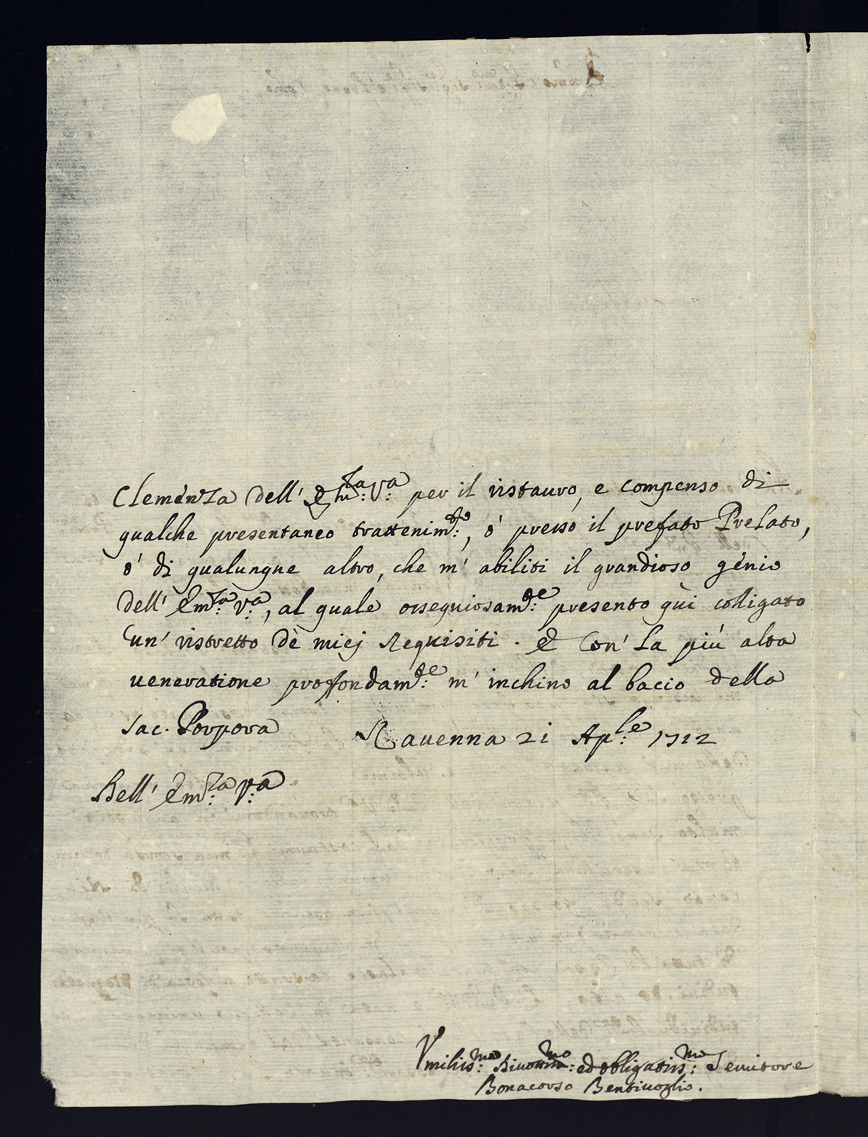 Clemenza dell' Em:za V:a per il ristauro, e compenso di
qualche presentaneo trattenim:to, ò presso il prefato Prelato,
ò di qualunque altro, che m' abiliti il grandioso génio
dell' Em:za V:a, al quale ossequiosam:te presento quì colligato
un' ristretto dè miej Requisiti. E con' la più alta
veneratione proffondam:te m' inchino al bacio della
Sac. Porpora Ravenna 21 Ap:le 1712
Dell' Em:za V:a
Vmiliss:mo Divotiss:mo ed obligatiss:mo Servitore
Bonacorso Bentivoglio.